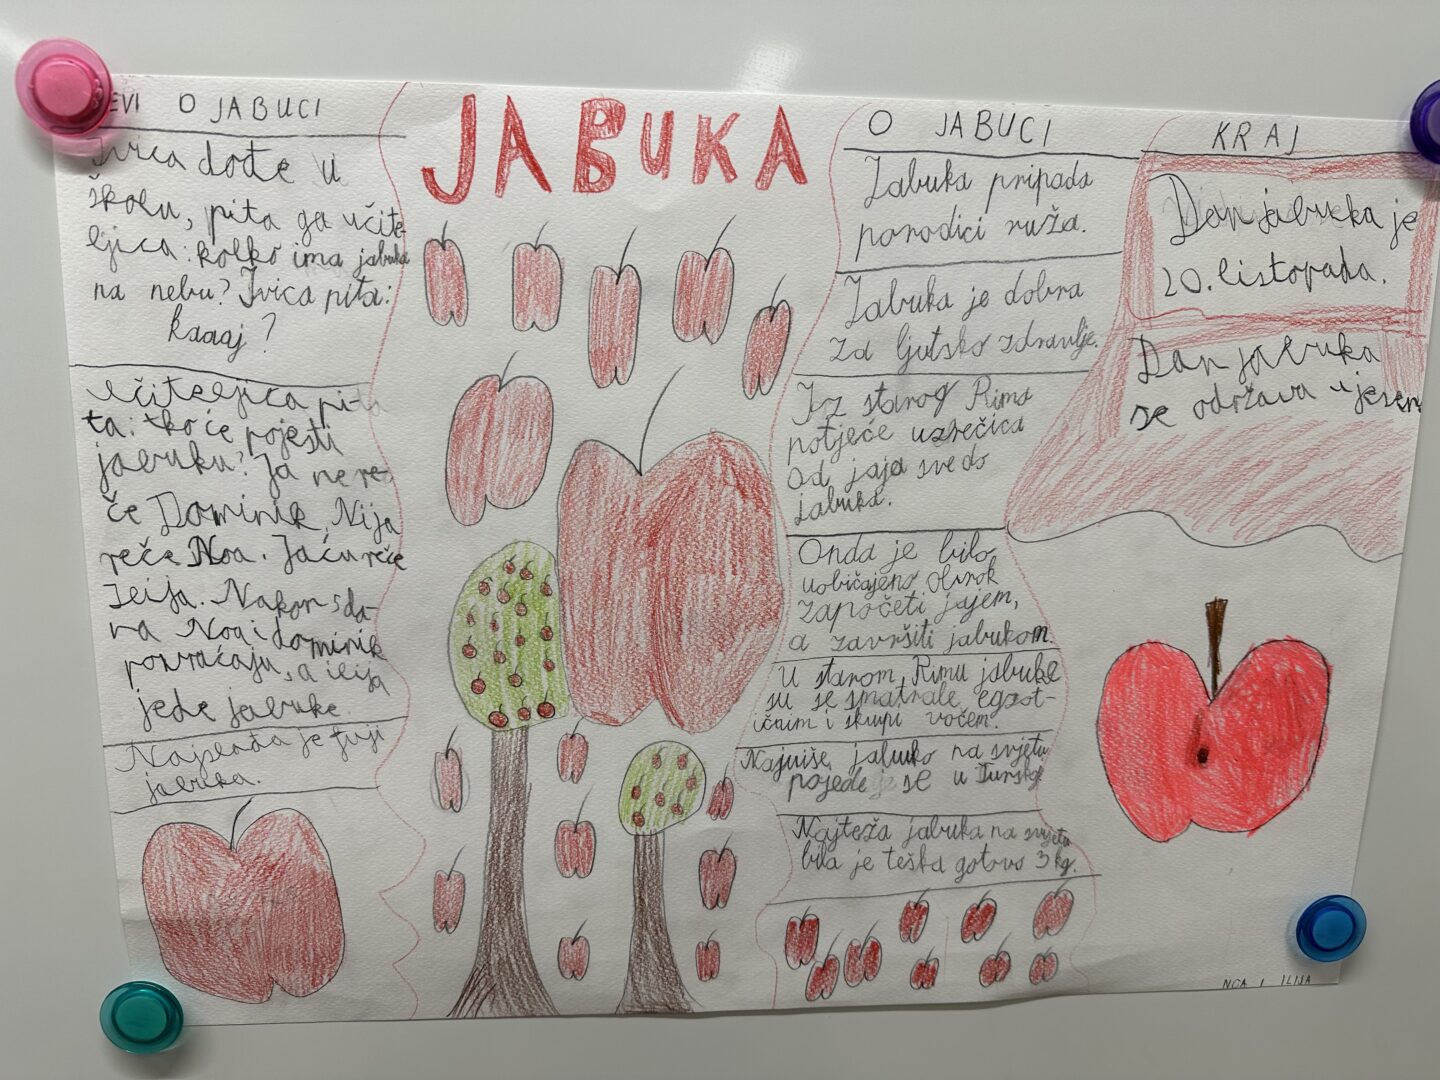 EVI O JABUCI
Ivica dođe u
školu, pita ga učite-
ljica: kolko ima jabuka
na nebu? Ivica pita:
kaaaj?
Učiteljica pi-
ta: tko će pojesti
jabuku? Ja ne re-
če Dominik, Nija
reče Noa. Ja ću reče
Ilija. Nakon sda-
ra Noa i dominik
povraćaju, a ilija
jede jabuke.
Najslađa je fuji
jabuka.
JABUKA
O JABUCI
Jabuka pripada
porodici ruža.
Jabuka je dobra
za ljutsko zdravlje.
Iz starog Rima
potječe uzrečica
Od jaja sve do
jabuka.
Onda je bilo
uobičajeno obrok
započeti jajem,
a završiti jabukom.
U starom Rimu jabuke
su se smatrale egzot-
ičnim i skupi voćem.
Najviše jabuka na svjetu
pojede je se u Turskoj
Najteža jabuka na svijetu
bila je teška gotovo 3 kg.
KRAJ
Dan jabuka je
20. listopada.
Dan jabuka
se održava u jesen
NOA I ILIJA